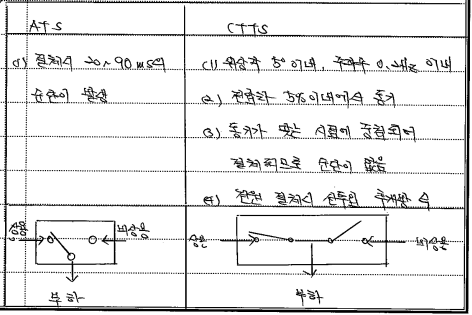 ATS
(1) 절체시 20~90ms의
순단이 발생
상용
비상용
부하
CTTS
(1) 위상차 5° 이내, 주파수 0.2Hz 이내
(2) 전압차 5% 이내에서 동기
(3) 동기가 맞는 시점에 중첩되어
절체되므로 순단이 없음
(4) 전원 절체시 선투입 후개방 식
상용
비상용
부하